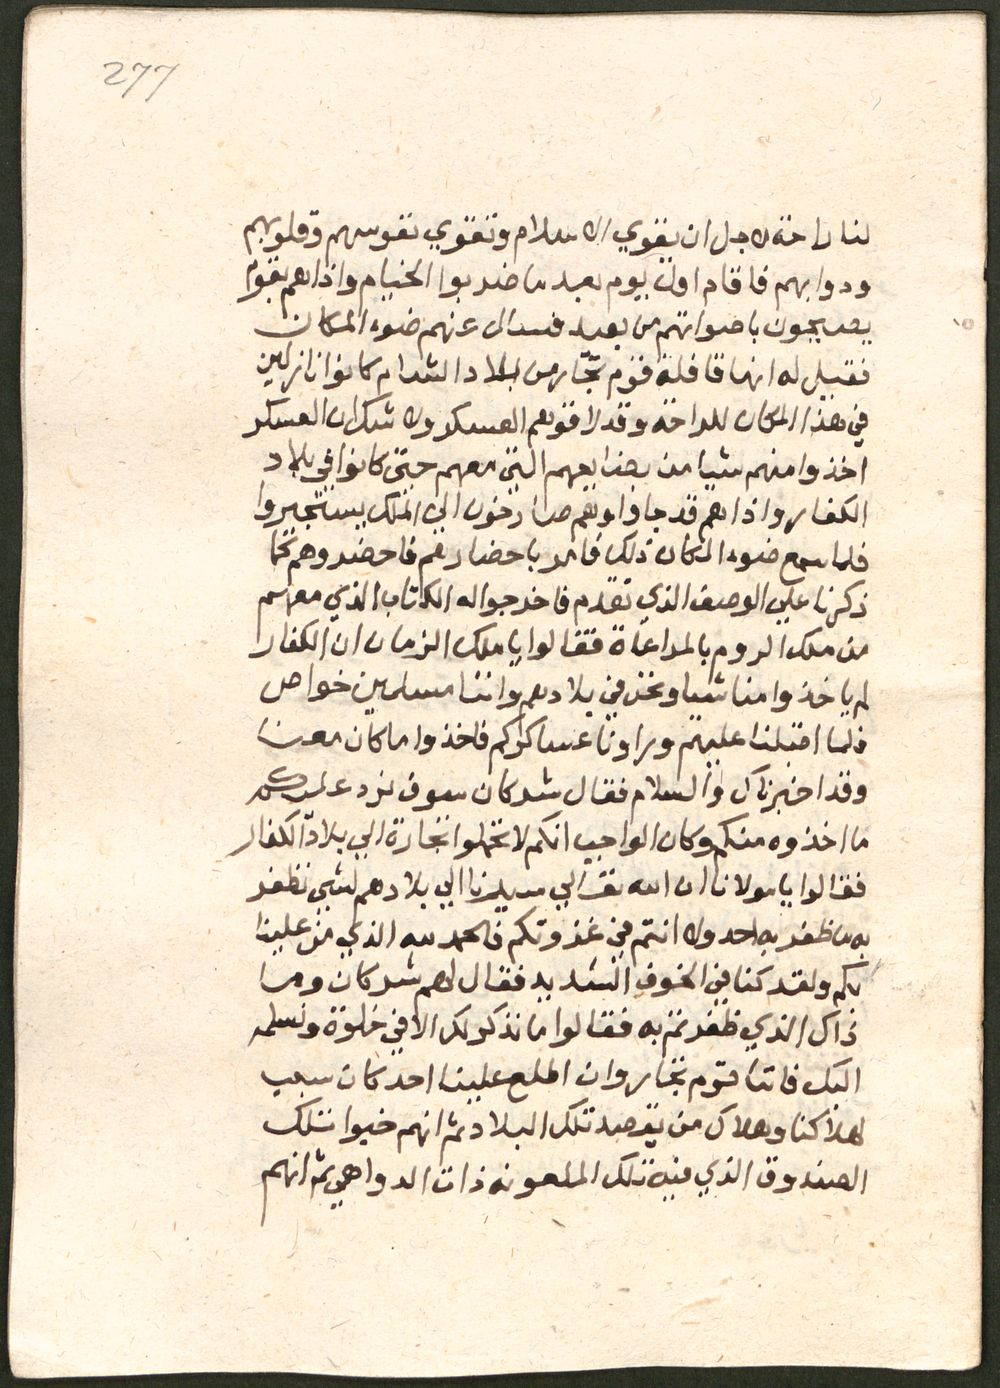 277
لنا راحة لاجل ان يقوي الاسلام وتقوي نفوسهم وقلوبهم
ودوابهم فاقام اول يوم بعد ما ضربوا الخيام واذا هم بقوم
يصيحون باصواتهم من بعيد فسال عنهم ضوء المكان
فقيل له انها قافلة قوم تجار من بلاد الشام كانوا نازلين
في هذا المكان للراحة وقد لاقوهم العسكر ولا شك ان العسكر
اخذوا منهم شيا من بضايعهم التي معهم حيث كانوا في بلاد
الكفار واذا هم قد جاوا وهم صارخون الي الملك يستجيروا
فلما سمع ضوء المكان ذلك فامر باحضارهم فاحضروهم كما
ذكرنا علي الوصف الذي تقدم فاخرجوا له الكتاب الذي معهم
من ملك الروم بالمراعاة فقالوا يا ملك الزمان ان الكفار
لم ياخذوا منا شيا ونحن في بلادهم واننا مسلمين خواص
فلما اقبلنا عليهم وراونا عساكركم فاخذوا ما كان معنا
وقد اخبرناك والسلام فقال شركان سوف نرد عليكم
ما اخذوه منكم وكان الواجب انكم لا تحملوا تجارة الي بلاد الكفار
فقالوا يا مولانا ان الله تعالي سيرنا الي بلادهم لشي نظفر
به ما ظفر به احد ولا انتم في غزوتكم فالحمد لله الذي من علينا
بكم ولقد كنا في الخوف الشديد فقال لهم شركان وما
ذاك الذي ظفرتم به فقالوا ما نذكر لك الا في خلوة ونسلمه
اليك فاننا قوم تجار وان اطلع علينا احد كان سبب
لهلاكنا وهلاك من يقصد تلك البلاد ثم انهم خبوا تلك
الصندوق الذي فيه تلك الملعونه ذات الدواهي ثم انهم